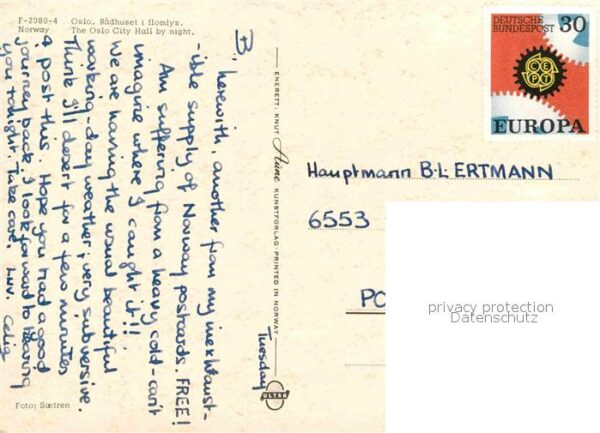 F-2080-4 Oslo. Rådhuset i flomlys.
Norway The Oslo City Hall by night.
B, herewith, another from my inexhaust-
-ible supply of Norway postcards. FREE!
Am suffering from a heavy cold - can't
imagine where I caught it!!
We are having the usual beautiful
working-day weather; very subversive.
Think I'll desert for a few minutes
& post this. Hope you had a good
journey back. I look forward to having
you tonight. Take care. Luv. Celia
Tuesday
Foto: Sætren
ENERETT: KNUT Aune KUNSTFORLAG - PRINTED IN NORWAY
DEUTSCHE
BUNDESPOST 30
CEPT
EUROPA
Hauptmann B.L ERTMANN
6553
PO
privacy protection
Datenschutz